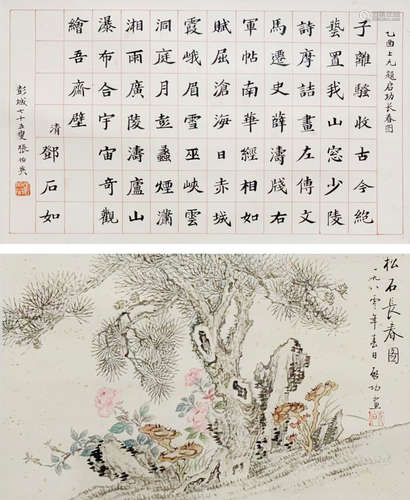 乙酉上元題启功長春图
子離騷收古今絕
藝置我山窓少陵
詩摩詰畫左傳文
馬遷史薛濤牋右
軍帖南華經相如
賦屈滄海日赤城
霞峨眉雪巫峽雲
洞庭月彭蠡煙瀟
湘雨廣陵濤廬山
瀑布合宇宙奇觀
繪吾齋壁
清鄧石如
彭城七十五叟張伯英
松石長春圖
一九八〇年春日启功画